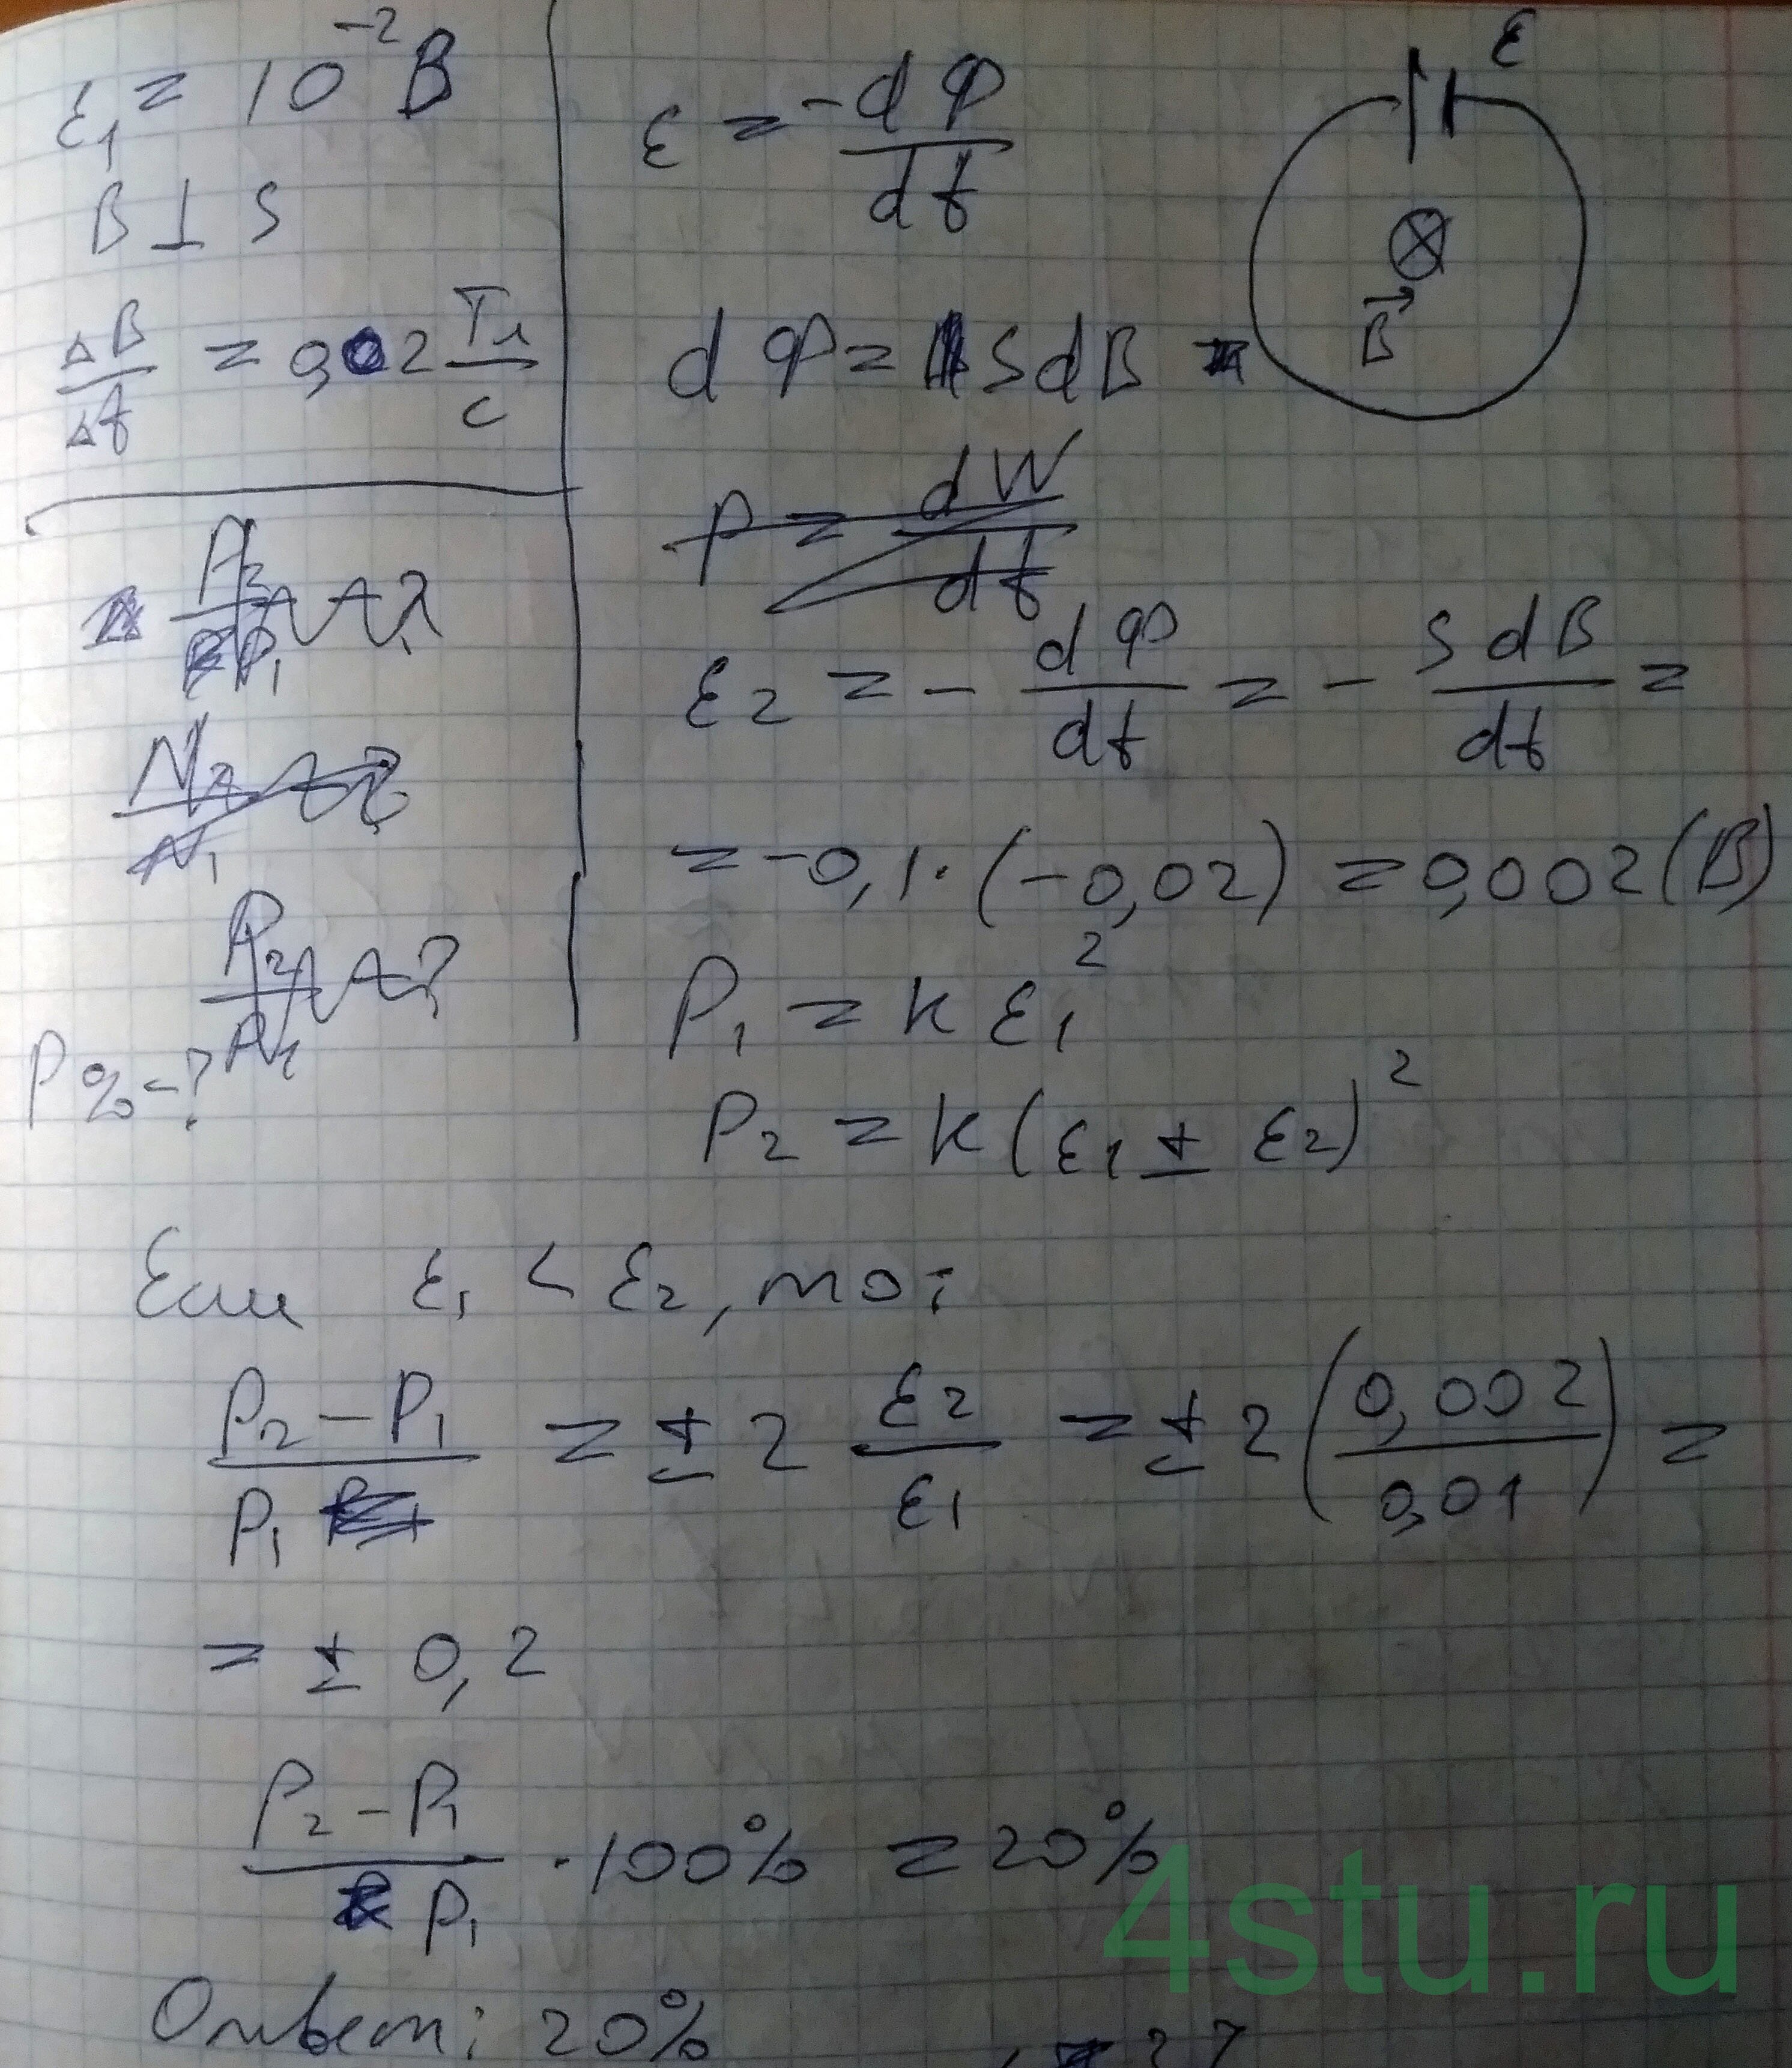 ε₁ = 10⁻² В
B ⊥ S
ΔB/Δt = 0,02 Тл/с
P₂/P₁ - ?
N₂/N₁ - ?
P₂/P₁ - ?
P% - ?
ε
B⃗
ε = -dФ/dt
dФ = SdB
P = dW/dt
ε₂ = - dФ/dt = - SdB/dt =
= -0,1·(-0,02) = 0,002(В)
P₁ = kε₁²
P₂ = k(ε₁ ± ε₂)²
Если ε₁ < ε₂, то:
(P₂ - P₁)/P₁ = ± 2 ε₂/ε₁ = ± 2 (0,002/0,01) =
= ± 0,2
(P₂ - P₁)/P₁ · 100% = 20%
Ответ: 20%
4stu.ru